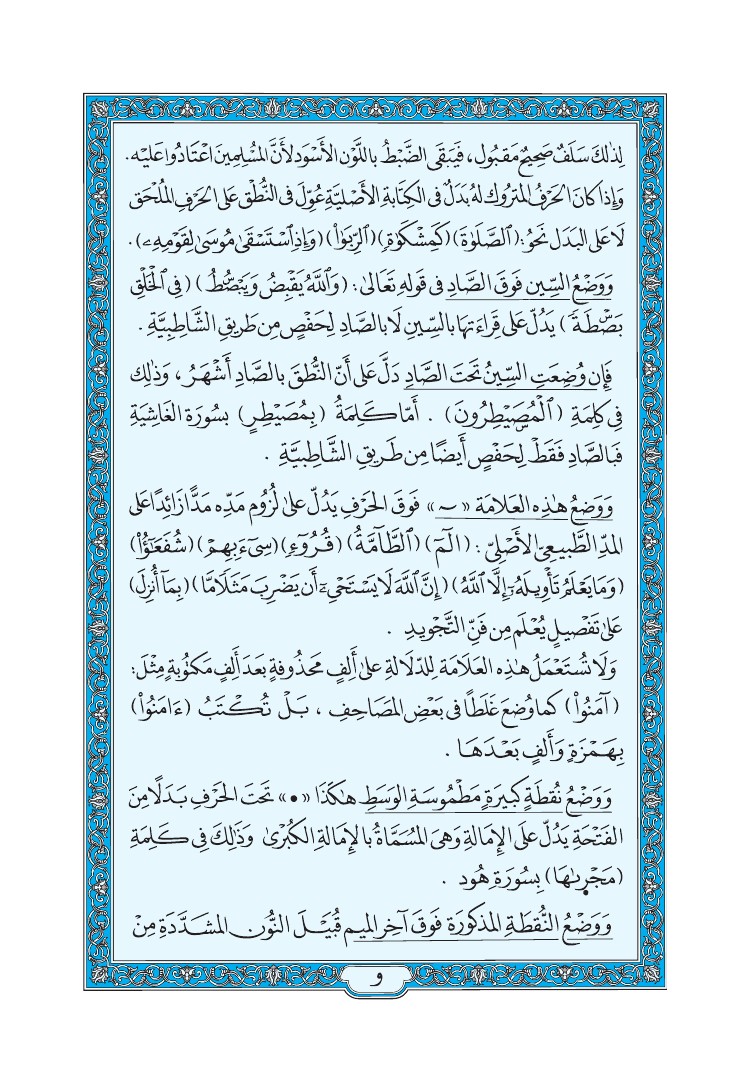 لِذٰلِكَ سَلَفٌ صَحِيحٌ مَقْبُول، فَيَبْقَى الضَّبْطُ بِاللَّوْنِ الأَسْوَدِ لأَنَّ المُسْلِمِينَ اعْتَادُوا عَلَيْه.
وَإِذَا كَانَ الحَرْفُ المَتْرُوكُ لَهُ بَدَلٌ فى الكِتَابَةِ الأَصْلِيَّةِ عُوِّلَ فى النُّطْقِ عَلَى الحَرْفِ المُلْحَقِ
لَا عَلَى البَدَلِ نَحْوُ: (ٱلصَّلَوٰةَ) (كَمِشْكَوٰةٍ) (ٱلرِّبَوٰا۟) (وَإِذِ ٱسْتَسْقَىٰ مُوسَىٰ لِقَوْمِهِۦ).
وَوَضْعُ السِّينِ فَوْقَ الصَّادِ فى قَوْلِهِ تَعَالَىٰ: (وَٱللَّهُ يَقْبِضُ وَيَبْصُۜطُ) (فِى ٱلْخَلْقِ
بَصْۜطَةً) يَدُلُّ عَلَى قِرَاءَتِهَا بِالسِّينِ لَا بِالصَّادِ لِحَفْصٍ مِن طَرِيقِ الشَّاطِبِيَّةِ.
فَإِن وُضِعَتِ السِّينُ تَحْتَ الصَّادِ دَلَّ عَلَى أَنَّ النُّطْقَ بِالصَّادِ أَشْهَرُ، وَذٰلِكَ
فى كَلِمَةِ (ٱلْمُصَۣيْطِرُونَ). أَمَّا كَلِمَةُ (بِمُصَيْطِرٍ) بِسُورَةِ الغَاشِيَةِ
فَبِالصَّادِ فَقَطْ لِحَفْصٍ أَيضًا مِن طَرِيقِ الشَّاطِبِيَّةِ.
وَوَضْعُ هٰذِهِ العَلَامَةِ «ٓ» فَوْقَ الحَرْفِ يَدُلُّ عَلَىٰ لُزُومِ مَدِّهِ مَدًّا زَائِدًا عَلَى
المَدِّ الطَّبِيعِىِّ الأَصْلِىِّ: (الٓمٓ) (ٱلطَّآمَّةُ) (قُرُوٓءٍ) (سِىٓءَ بِهِمْ) (شُفَعَٰٓؤُا۟)
(وَمَا يَعْلَمُ تَأْوِيلَهُۥٓ إِلَّا ٱللَّهُ) (إِنَّ ٱللَّهَ لَا يَسْتَحْىِۦٓ أَن يَضْرِبَ مَثَلًا مَّا) (بِمَآ أُنزِلَ)
عَلَىٰ تَفْصِيلٍ يُعْلَم مِن فَنِّ التَّجْوِيدِ.
وَلَا تُسْتَعْمَلُ هٰذِهِ العَلَامَة لِلدِّلَالَةِ عَلَىٰ أَلِفٍ مَحْذُوفَةٍ بَعْدَ أَلِفٍ مَكْتُوبَةٍ مِثْلَ:
(آمَنُوا۟) كَما وُضِعَ غَلَطًا فى بَعْضِ المَصَاحِفِ، بَلْ تُكْتَبُ (ءَامَنُوا۟)
بِهَمْزَةٍ وَأَلِفٍ بَعْدَهَا.
وَوَضْعُ نُقْطَةٍ كَبِيرَةٍ مَطْمُوسَةِ الوَسَطِ هٰكَذَا «•» تَحْتَ الحَرْفِ بَدَلًا مِنَ
الفَتْحَةِ يَدُلُّ عَلَى الإِمَالَةِ وَهِىَ المُسَمَّاةُ بِالإِمَالَةِ الكُبْرَىٰ وَذَٰلِكَ فِى كَلِمَةِ
(مَجْر۪ىٰهَا) بِسُورَةِ هُود.
وَوَضْعُ النُّقْطَةِ المَذكُورَةِ فَوْقَ آخِرِ المِيمِ قُبَيْلَ النُّونِ المُشَدَّدَةِ مِنْ
و